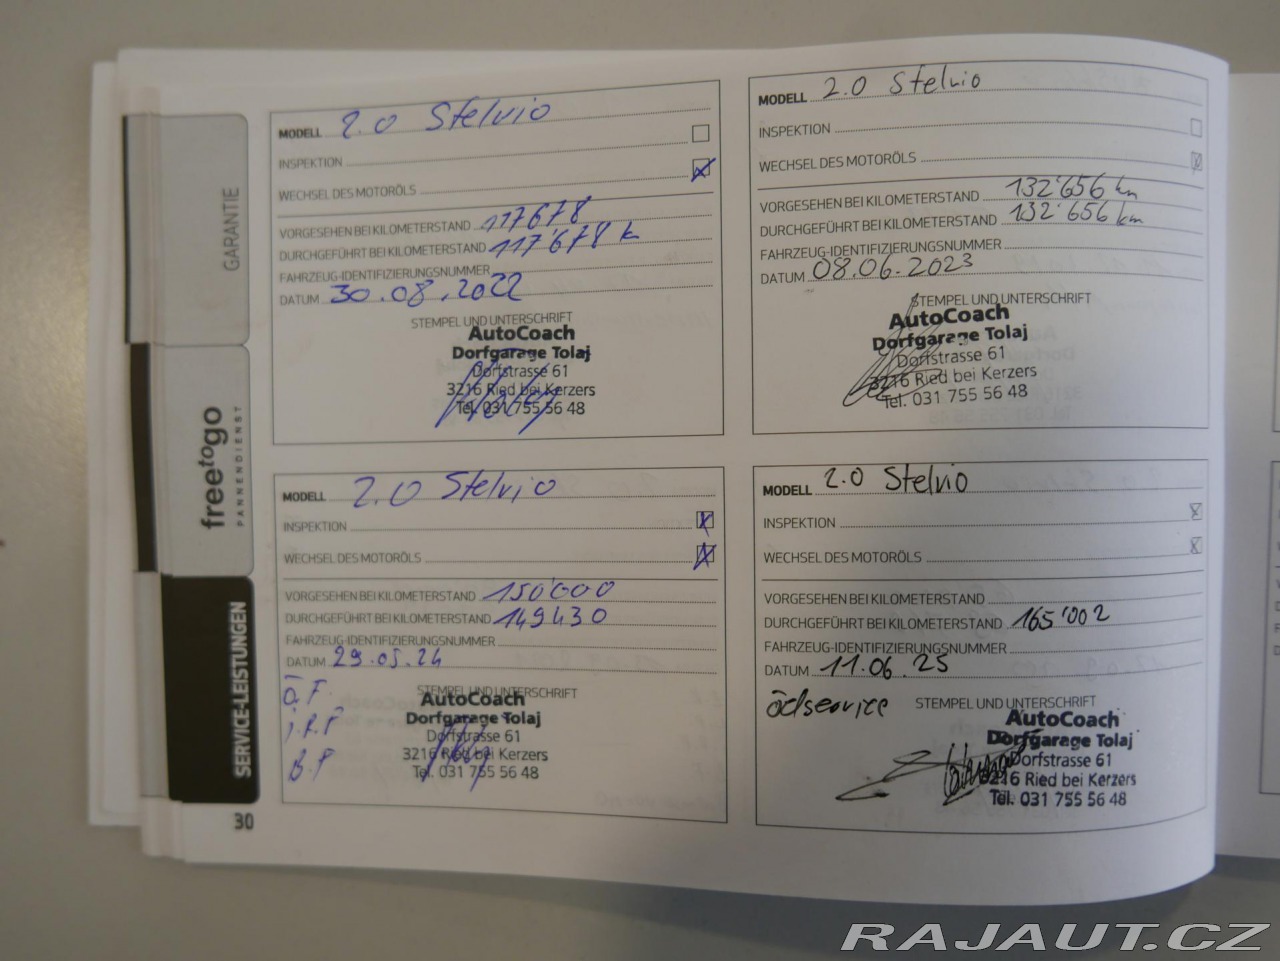 GARANTIE
freetogo
PANNENDIENST
SERVICE-LEISTUNGEN
30
MODELL 2.0 Stelvio
INSPEKTION
WECHSEL DES MOTORÖLS
VORGESEHEN BEI KILOMETERSTAND 117678
DURCHGEFÜHRT BEI KILOMETERSTAND 117'678 k
FAHRZEUG-IDENTIFIZIERUNGSNUMMER
DATUM 30.08.2022
STEMPEL UND UNTERSCHRIFT
AutoCoach
Dorfgarage Tolaj
Dorfstrasse 61
3216 Ried bei Kerzers
Tel. 031 755 56 48
MODELL 2.0 Stelvio
INSPEKTION
WECHSEL DES MOTORÖLS
VORGESEHEN BEI KILOMETERSTAND 132'656 km
DURCHGEFÜHRT BEI KILOMETERSTAND 132'656 km
FAHRZEUG-IDENTIFIZIERUNGSNUMMER
DATUM 08.06.2023
STEMPEL UND UNTERSCHRIFT
AutoCoach
Dorfgarage Tolaj
Dorfstrasse 61
3216 Ried bei Kerzers
Tel. 031 755 56 48
MODELL 2.0 Stelvio
INSPEKTION
WECHSEL DES MOTORÖLS
VORGESEHEN BEI KILOMETERSTAND 150'000
DURCHGEFÜHRT BEI KILOMETERSTAND 149430
FAHRZEUG-IDENTIFIZIERUNGSNUMMER
DATUM 29.05.24
Ö.F
i.R.F
B.F
STEMPEL UND UNTERSCHRIFT
AutoCoach
Dorfgarage Tolaj
Dorfstrasse 61
3216 Ried bei Kerzers
Tel. 031 755 56 48
MODELL 2.0 Stelvio
INSPEKTION
WECHSEL DES MOTORÖLS
VORGESEHEN BEI KILOMETERSTAND
DURCHGEFÜHRT BEI KILOMETERSTAND 165'002
FAHRZEUG-IDENTIFIZIERUNGSNUMMER
DATUM 11.06.25
ödservice STEMPEL UND UNTERSCHRIFT
AutoCoach
Dorfgarage Tolaj
Dorfstrasse 61
3216 Ried bei Kerzers
Tel. 031 755 56 48
RAJAUT.CZ